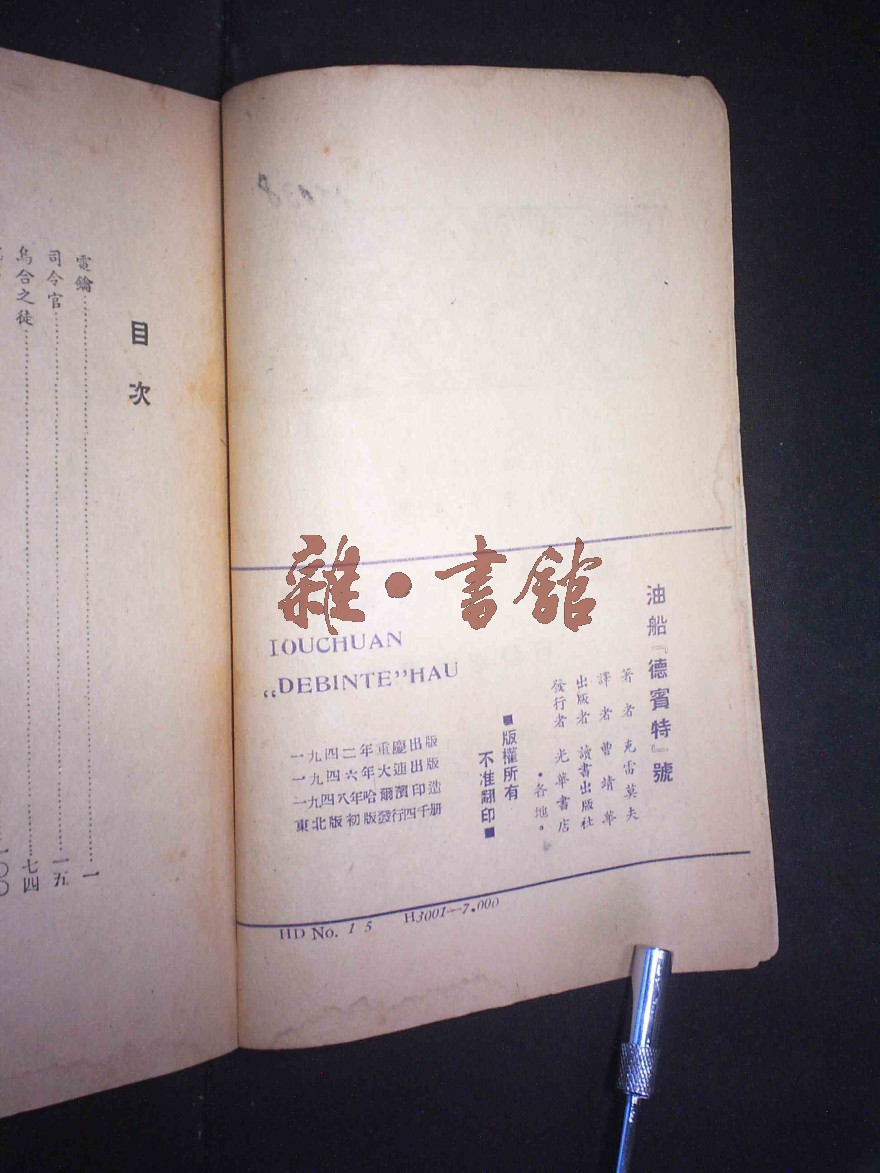 油船『德賓特』號
著者 克雷莫夫
譯者 曹靖華
出版者 讀書出版社
發行者 光華書店
•各地•
■版權所有
不准翻印■
IOUCHUAN
„DEBINTE”HAU
一九四二年重慶出版
一九四六年大連出版
一九四八年哈爾濱印造
東北版初版發行四千册
HD No. 15 H3001—7.000
目次
電鑰……一
司令官……一五
烏合之徒……七四
一〇〇
雜•書館